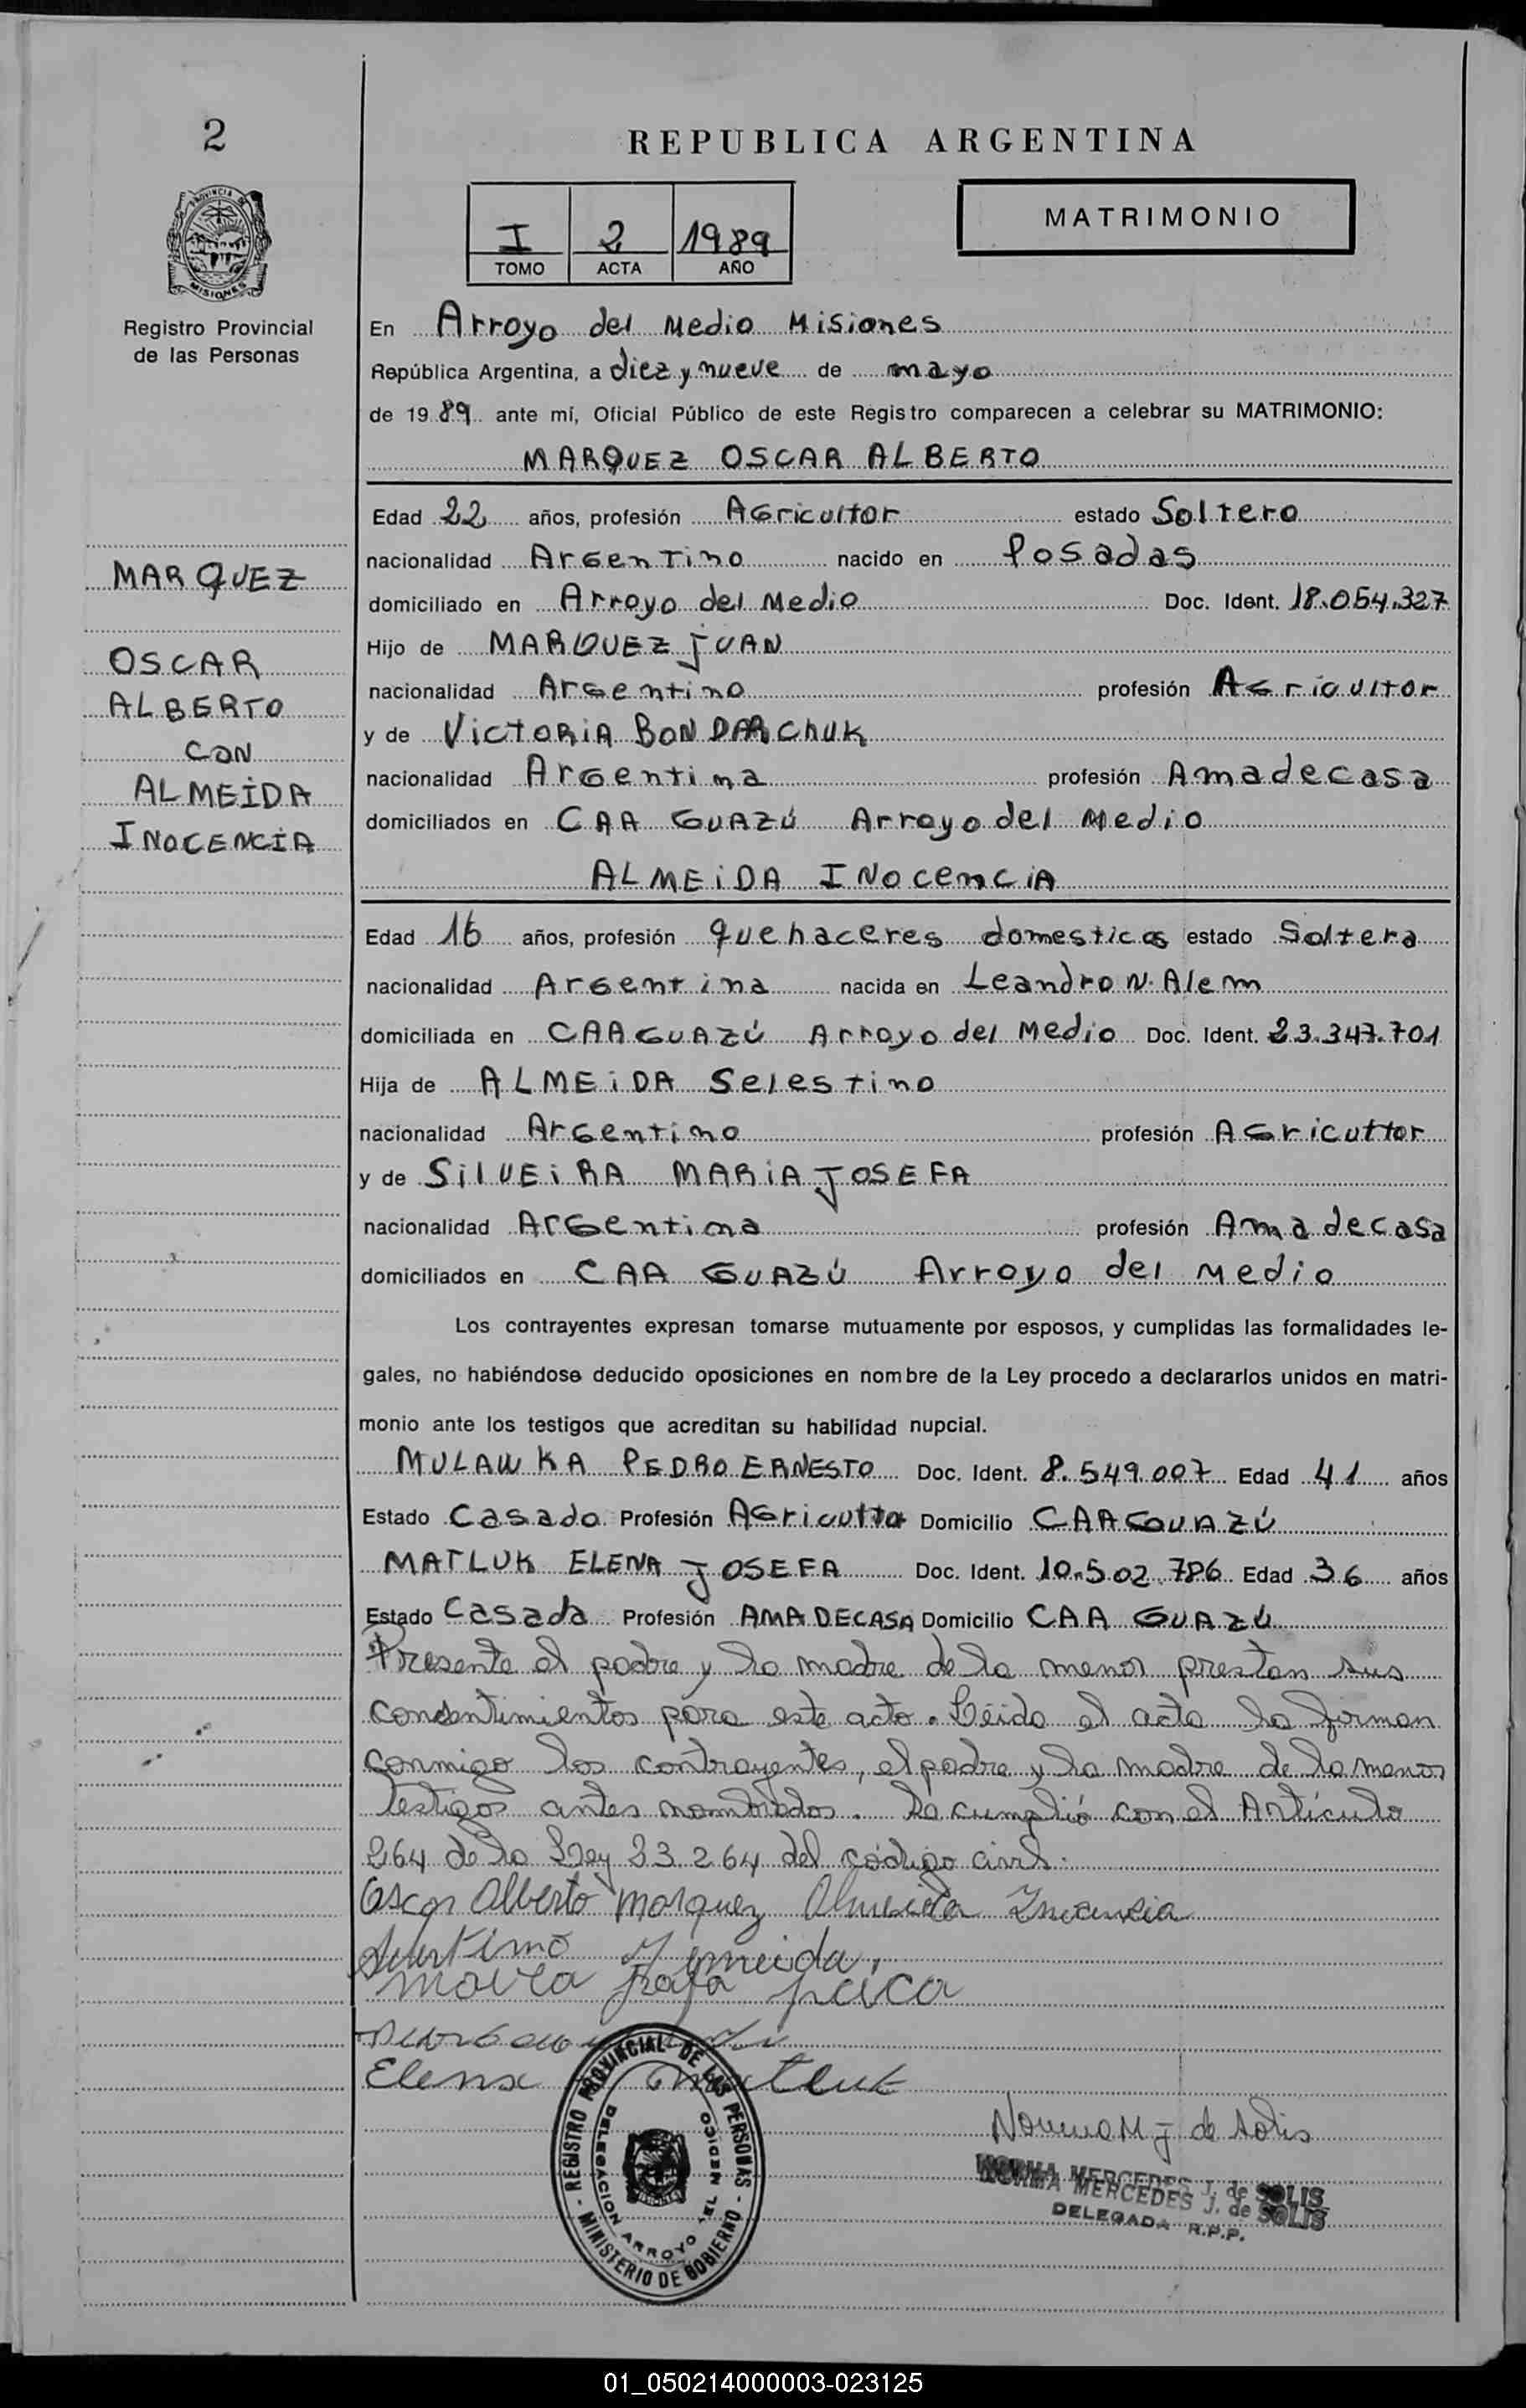 2
REPUBLICA ARGENTINA
PROVINCIA DE
MISIONES
Registro Provincial
de las Personas
I 2 1989
TOMO ACTA AÑO
MATRIMONIO
En Arroyo del Medio Misiones
República Argentina, a diez y nueve de mayo
de 1989 ante mí, Oficial Público de este Registro comparecen a celebrar su MATRIMONIO:
MARQUEZ OSCAR ALBERTO
MARQUEZ
OSCAR
ALBERTO
CON
ALMEIDA
INOCENCIA
Edad 22 años, profesión Agricultor estado Soltero
nacionalidad Argentino nacido en Posadas
domiciliado en Arroyo del Medio Doc. Ident. 18.054.327
Hijo de MARQUEZ JUAN
nacionalidad Argentino profesión Agricultor
y de VICTORIA BONDARCHUK
nacionalidad Argentina profesión Amadecasa
domiciliados en CAA GUAZÚ Arroyo del Medio
ALMEIDA INOCENCIA
Edad 16 años, profesión quehaceres domesticos estado Soltera
nacionalidad Argentina nacida en Leandro N. Alem
domiciliada en CAAGUAZÚ Arroyo del Medio Doc. Ident. 23.347.701
Hija de ALMEIDA Selestino
nacionalidad Argentino profesión Agricuttor
y de SILVEIRA MARIA JOSEFA
nacionalidad Argentina profesión Ama decasa
domiciliados en CAA GUAZÚ Arroyo del Medio
Los contrayentes expresan tomarse mutuamente por esposos, y cumplidas las formalidades le-
gales, no habiéndose deducido oposiciones en nombre de la Ley procedo a declararlos unidos en matri-
monio ante los testigos que acreditan su habilidad nupcial.
MULAWKA PEDRO ERNESTO Doc. Ident. 8.549.007 Edad 41 años
Estado Casado Profesión Agricultor Domicilio CAAGUAZÚ
MATLUK ELENA JOSEFA Doc. Ident. 10.502.786 Edad 36 años
Estado Casada Profesión AMADECASA Domicilio CAA GUAZÚ
Presente el padre y la madre de la menor prestan sus
consentimientos para este acto. Leida el acta la firman
conmigo los contrayentes, el padre y la madre de la menor
testigos antes nombrados. Se cumplió con el Artículo
264 de la Ley 23.264 del código civil.
Oscar Alberto Marquez Almeida Inocencia
Elena Matluk
REGISTRO PROVINCIAL DE LAS PERSONAS - MINISTERIO DE GOBIERNO -
DELEGACION ARROYO DEL MEDIO
Norma M J de Solis
NORMA MERCEDES J. de SOLIS
NORMA MERCEDES J. de SOLIS
DELEGADA R.P.P.
01_050214000003-023125